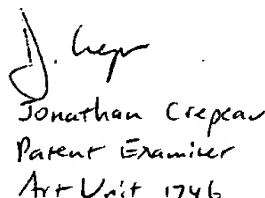 J. Crepeau
Jonathan Crepeau
Patent Examiner
Art Unit 1746